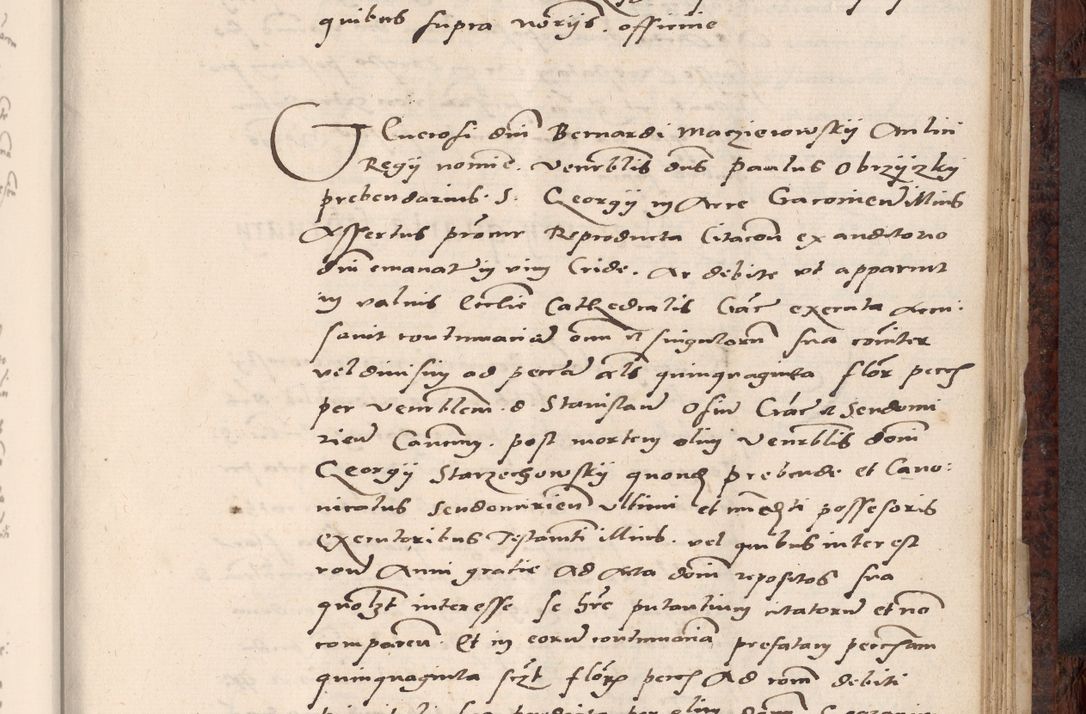 quibus supra notŕijs. officine
Generosi dni Bernardi Maczieiowskij Aulici
Regij nomine. Venerblis dns Paulus Obrzijczkij
prebendarius. S. Georgij in Arce Cracovien illius
Assertus procur Reproducta Citacon ex auditorio
dni emanat in vim Cride. Ac debite vt apparuit
in valuis Ecclie Cathedralis Crac executa Accu:
sauit contumacia omn et singulorum sua coniter
vel diuisim ad pecca als quinquaginta flor pecc
per Venerblem d Stanislau Crac et Sendomi
rien Canonicu. post mortem olim Venerblis domi
Georgij Starzechowskij quond prebende et Cano:
nicatus Sendomirien vltimi et immedti possessoris
Executoribus Testamti illius. vel quibus interest
rone Anni gratie Ad Acta domi repositos sua
quolzt interesse se hre putantium citatoru et no
comparen Et in eoru contumacia prefatam peccsam
quinquaginta sczt flor pecc Ad rom debiti